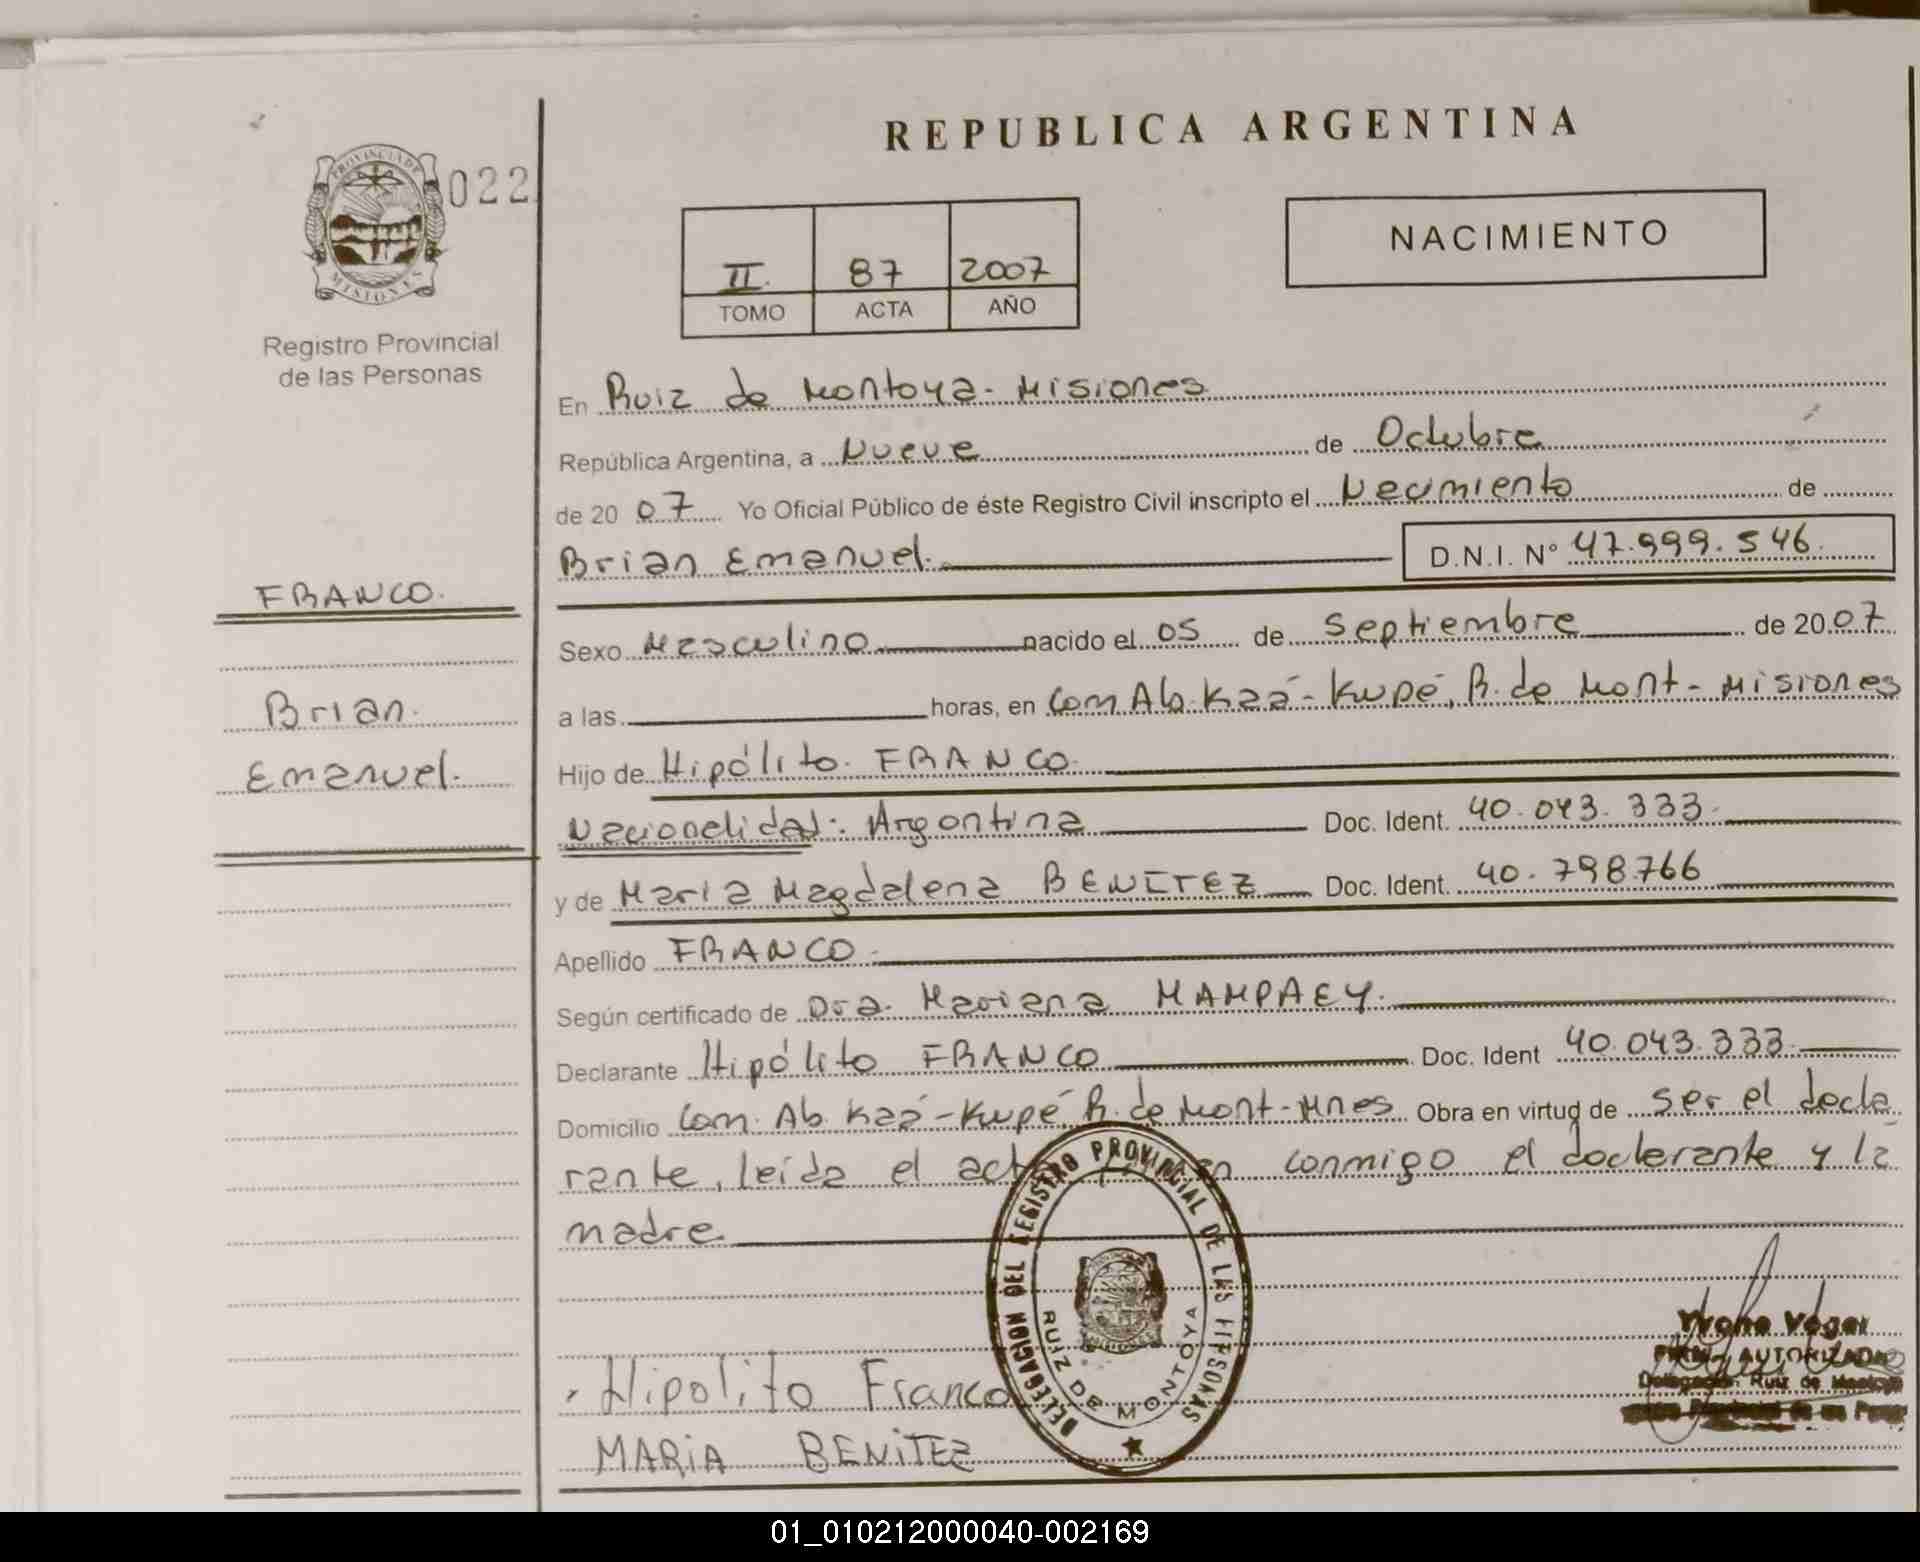 REPUBLICA ARGENTINA
PROVINCIA DE
MISIONES
022
Registro Provincial
de las Personas
II 87 2007
TOMO ACTA AÑO
NACIMIENTO
En Ruiz de Montoya - Misiones
República Argentina, a Nueve de Octubre
de 2007 Yo Oficial Público de éste Registro Civil inscripto el Necimiento de
Brian Emanuel. D.N.I. N° 47.999.546.
FRANCO.
Brian.
Emanuel.
Sexo Masculino nacido el 05 de Septiembre de 2007
a las horas, en Com Ab. Kaá-Kupé, R. de Mont - Misiones
Hijo de Hipólito FRANCO.
Nacionalidad: Argentina Doc. Ident. 40.043.333.
y de Maria Magdalena BENITEZ Doc. Ident. 40.798.766
Apellido FRANCO.
Según certificado de Dra. Mariana MAMPAEY.
Declarante Hipólito FRANCO Doc. Ident 40.043.333
Domicilio Com. Ab. Kaá-Kupé R. de Mont-Mnes Obra en virtud de ser el decla
rante, leída el acta conmigo el declerante y la
madre
DELEGACION DEL REGISTRO PROVINCIAL DE LAS PERSONAS
RUIZ DE MONTOYA
Hipolito Franco
MARiA BENiTEZ
Yvone Voger
FIRMA AUTORIZADA
Delegación Ruiz de Montoya
01_010212000040-002169